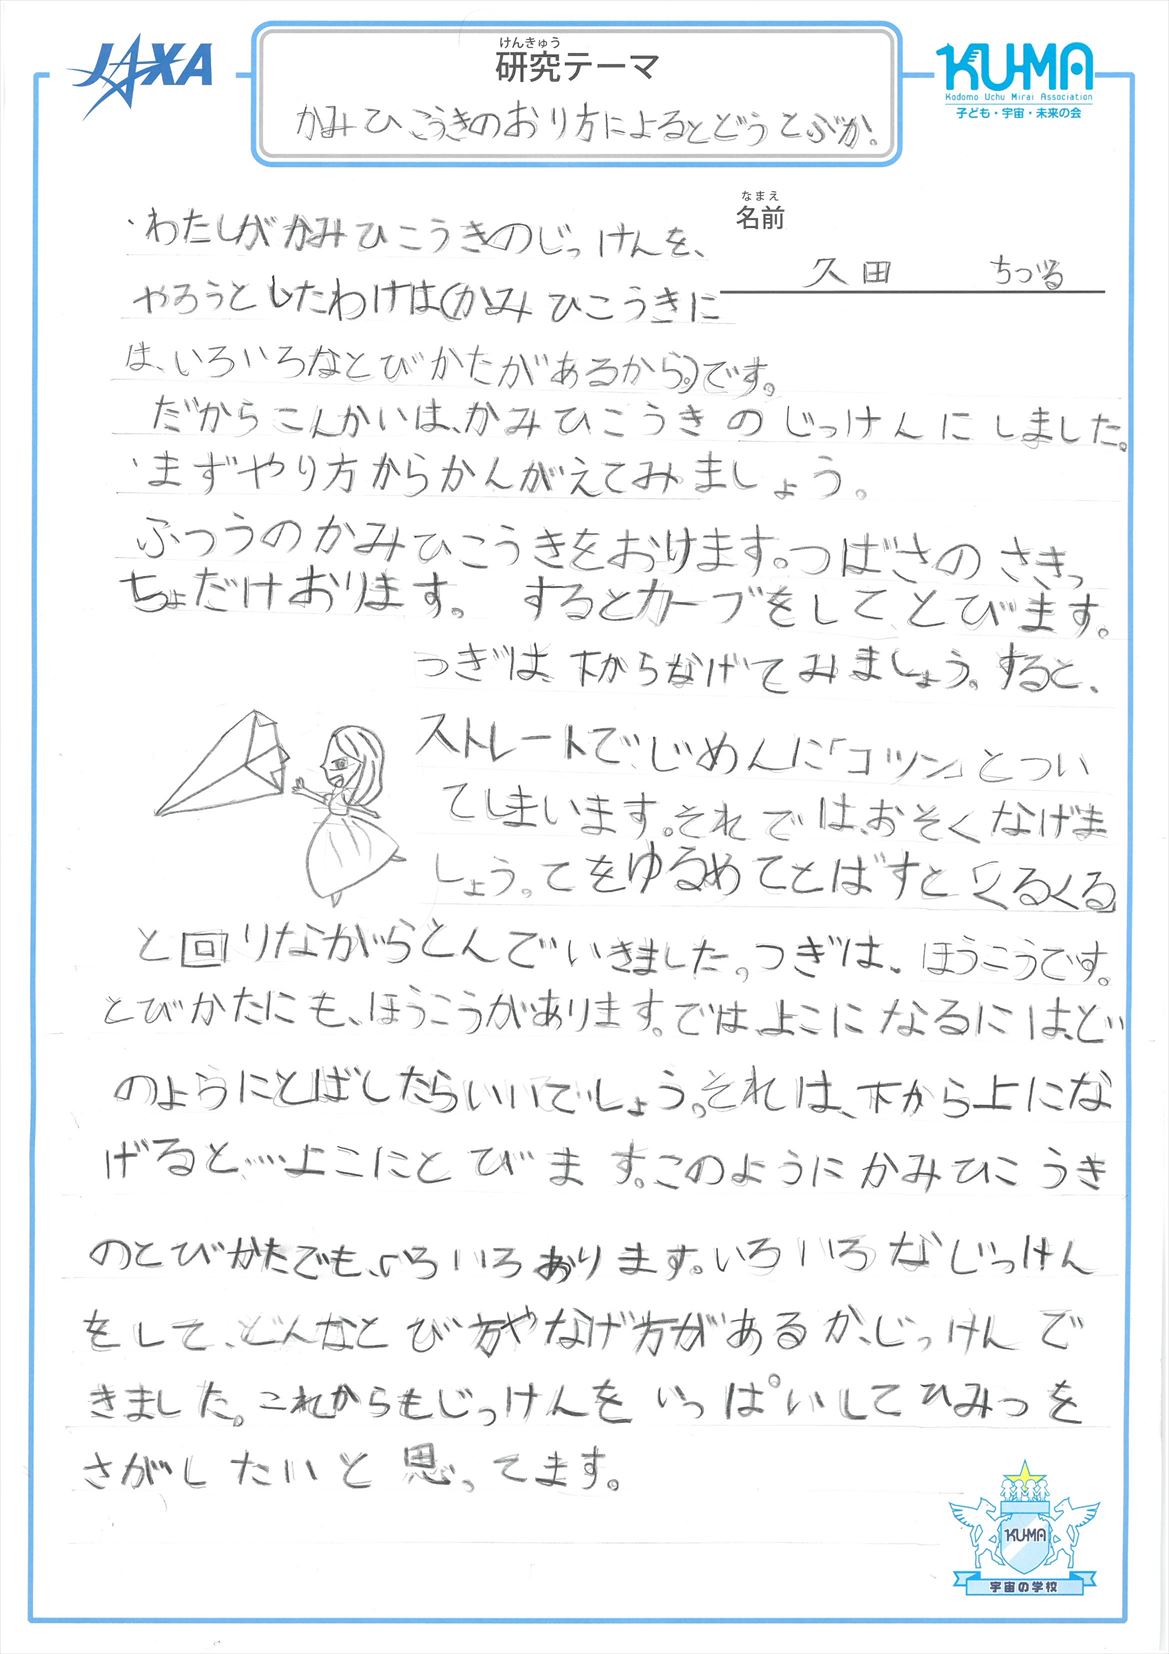 JAXA
けんきゅう
研究テーマ
かみひこうきのおり方によるとどうとぶか!
KU-MA
Kodomo Uchu Mirai Association
子ども・宇宙・未来の会
なまえ
名前
久田 ちづる
・わたしがかみひこうきのじっけんを、
やろうとしたわけは(かみひこうきに
は、いろいろなとびかたがあるから。)です。
だからこんかいは、かみひこうきのじっけんにしました。
・まずやり方からかんがえてみましょう。
ふつうのかみひこうきをおけます。つばさのさきっ
ちょだけおります。 するとカーブをして、とびます。
つぎは、下からなげてみましょう。すると、
ストレートで、じめんに「コツン」とつい
てしまいます。それでは、おそくなげま
しょう。てをゆるめてとばすと「くるくる」
と回りながらとんでいきました。つぎは、ほうこうです。
とびかたにも、ほうこうがあります。では、よこになるには、ど
のようにとばしたらいいでしょう。それは、下から上にな
げると…よこにとびます。このようにかみひこうき
のとびかたでも、いろいろあります。いろいろなじっけん
をして、どんなとび方やなげ方があるか、じっけんで
きました。これからもじっけんをいっぱいしてひみつを
さがしたいと思ってます。
KU-MA
宇宙の学校